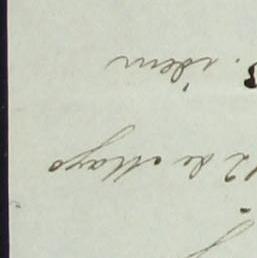 12 de Mayo
idem